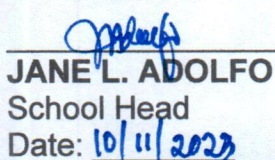 JANE L. ADOLFO
School Head
Date: 10/11/2023